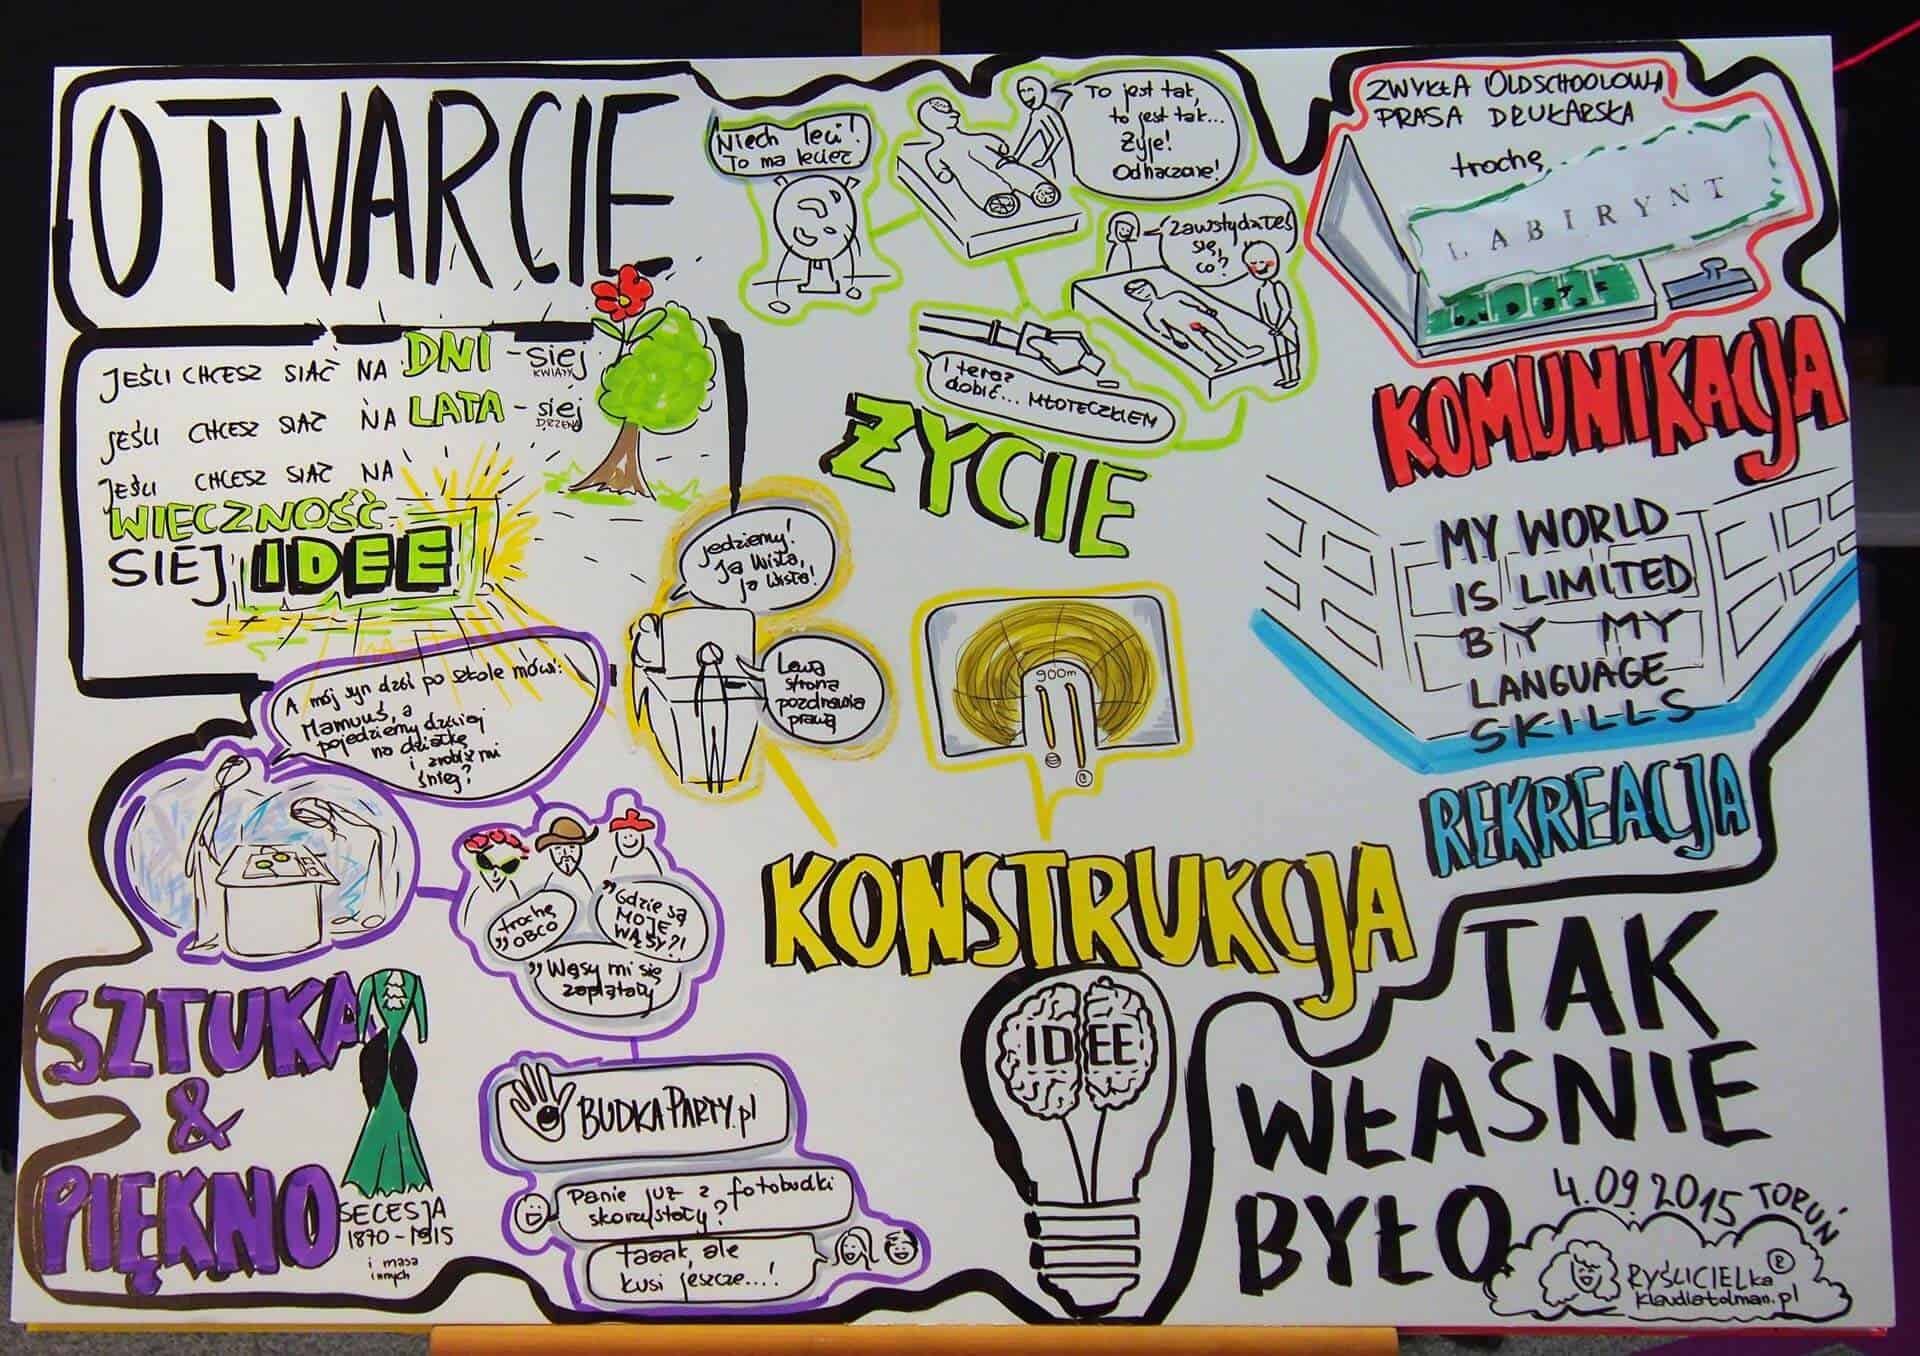 OTWARCIE
JEŚLI CHCESZ SIAĆ NA DNI - siej
KWIATY
JEŚLI CHCESZ SIAĆ NA LATA - siej
DRZEWA
JEŚLI CHCESZ SIAĆ NA
WIECZNOŚĆ
SIEJ IDEE
Niech leci!
To ma lecieć
To jest tak,
to jest tak...
Żyje!
Odhaczone!
Zawstydziłeś
się,
co?
I teraz
dobić... MŁOTECZKIEM
ŻYCIE
ZWYKŁA OLDSCHOOLOWA
PRASA DRUKARSKA
trochę
LABIRYNT
KOMUNIKACJA
MY WORLD
IS LIMITED
BY MY
LANGUAGE
SKILLS
REKREACJA
jedziemy!
Ja Wisła,
ja Wisła!
Lewa
strona
pozdrawia
prawą
900m
KONSTRUKCJA
A mój syn dziś po szkole mówi:
Mamuś, a
pojedziemy dzisiaj
na działkę
i zrobisz mi
śnieg?
"trochę
OBCO
"Gdzie są
MOJE
WĄSY?!
"Wąsy mi się
zaplątały
SZTUKA
&
PIĘKNO
SECESJA
1870-1915
i masa
innych
BUDKAPARTY.pl
Panie już z fotobudki
skorzystały?
taaak, ale
kusi jeszcze...!
IDEE
TAK
WŁAŚNIE
BYŁO
4.09.2015 TORUŃ
RYŚLICIELka ®
klaudiatolman.pl